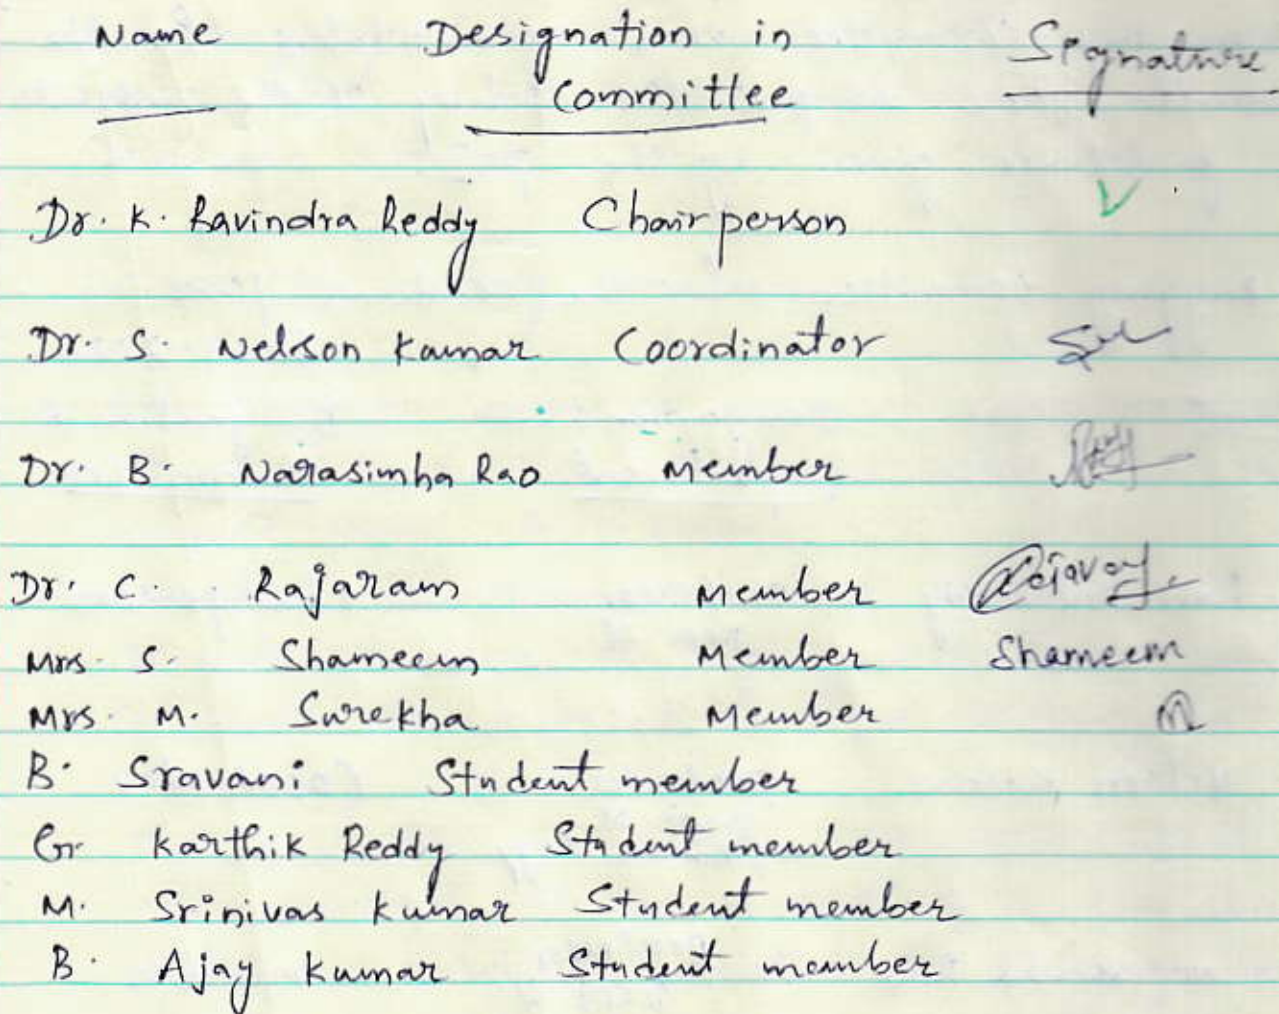 Name Designation in Signature
Committee
Dr. K. Ravindra Reddy Chairperson
Dr. S. Nelson Kumar Coordinator
Dr. B. Narasimha Rao Member
Dr. C. Rajaram Member
Mrs. S. Shameem Member Shameem
Mrs. M. Surekha Member
B. Sravani Student member
G. Karthik Reddy Student member
M. Srinivas Kumar Student member
B. Ajay Kumar Student member